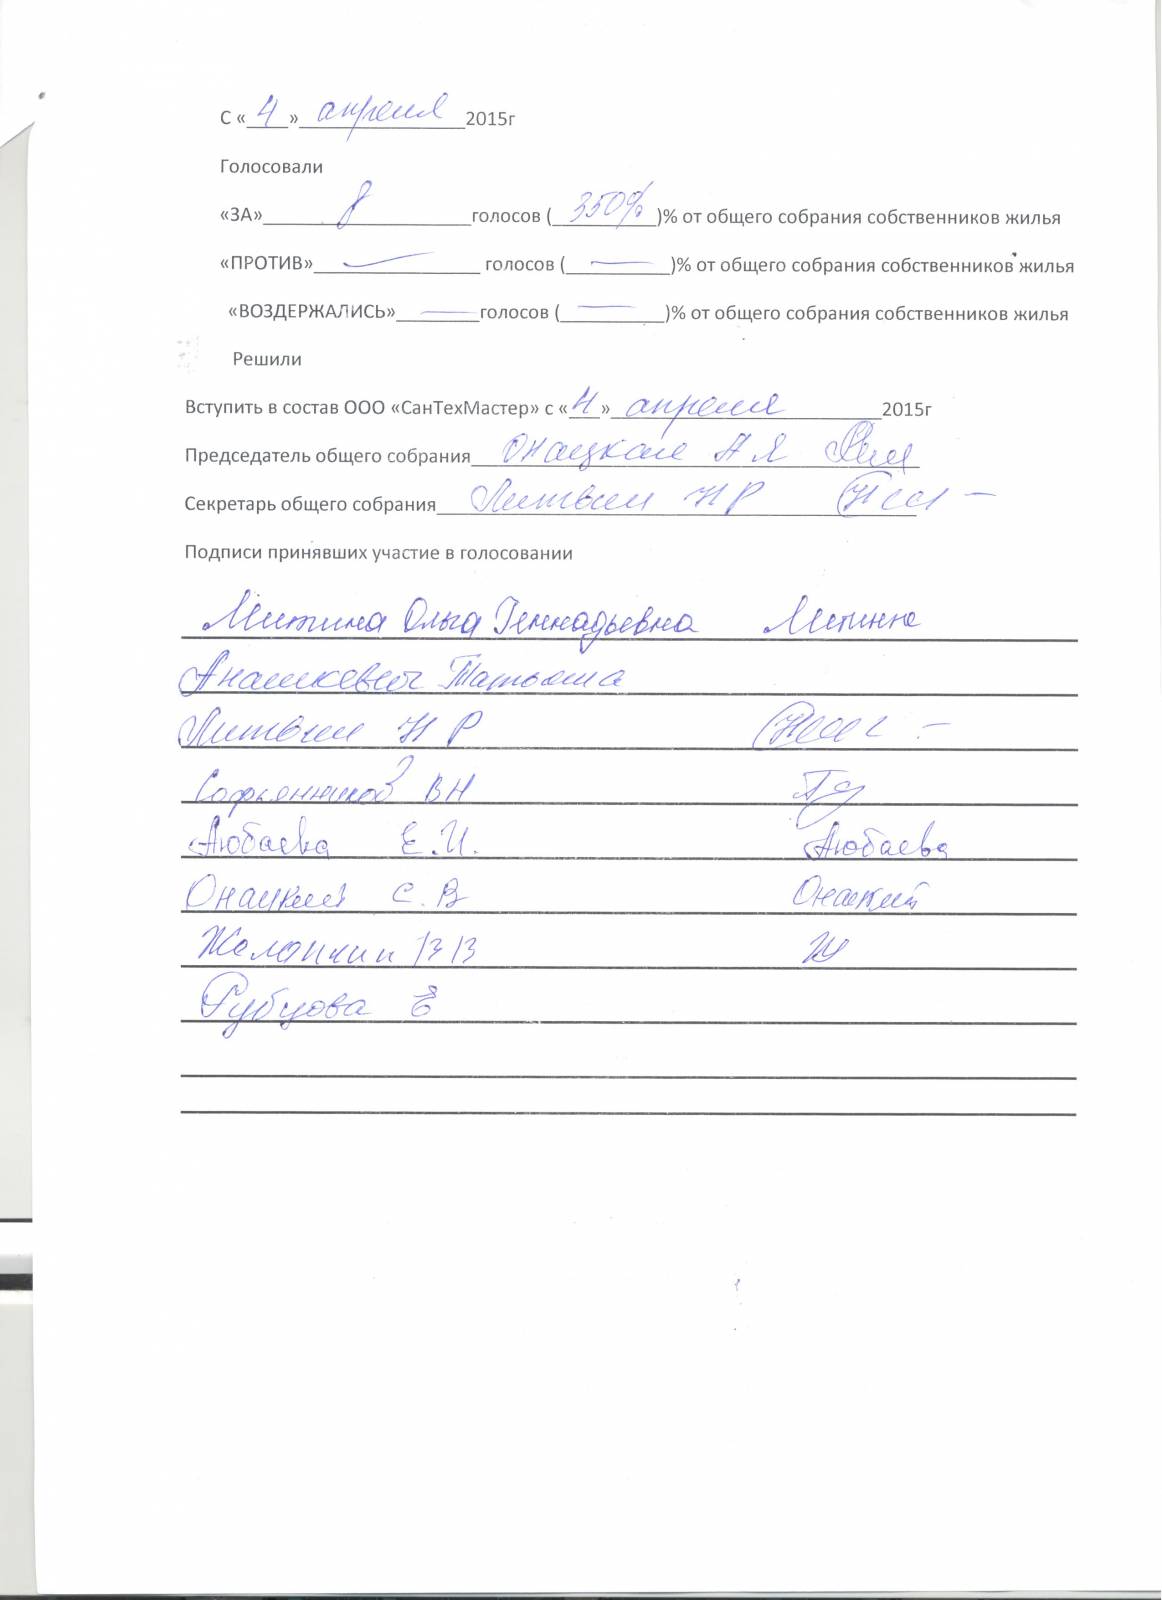 С «4» апреля 2015г
Голосовали
«ЗА» 8 голосов (350%)% от общего собрания собственников жилья
«ПРОТИВ» — голосов ( — )% от общего собрания собственников жилья
«ВОЗДЕРЖАЛИСЬ» — голосов ( — )% от общего собрания собственников жилья
Решили
Вступить в состав ООО «СанТехМастер» с «4» апреля 2015г
Председатель общего собрания Онацкая А Я
Секретарь общего собрания Литвин Н Р
Подписи принявших участие в голосовании
Митина Ольга Геннадьевна Митина
Анашкевич Татьяна
Литвин Н Р
Софьянников ВН
Любаева Е.И. Любаева
Онацкий С.В Онацкий
Желанкин ВВ
Рубцова Е